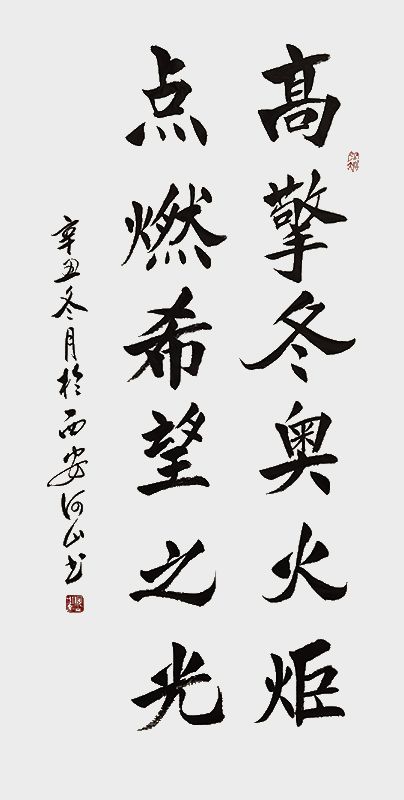 高擎冬奥火炬
点燃希望之光
辛丑冬月於西安河山书